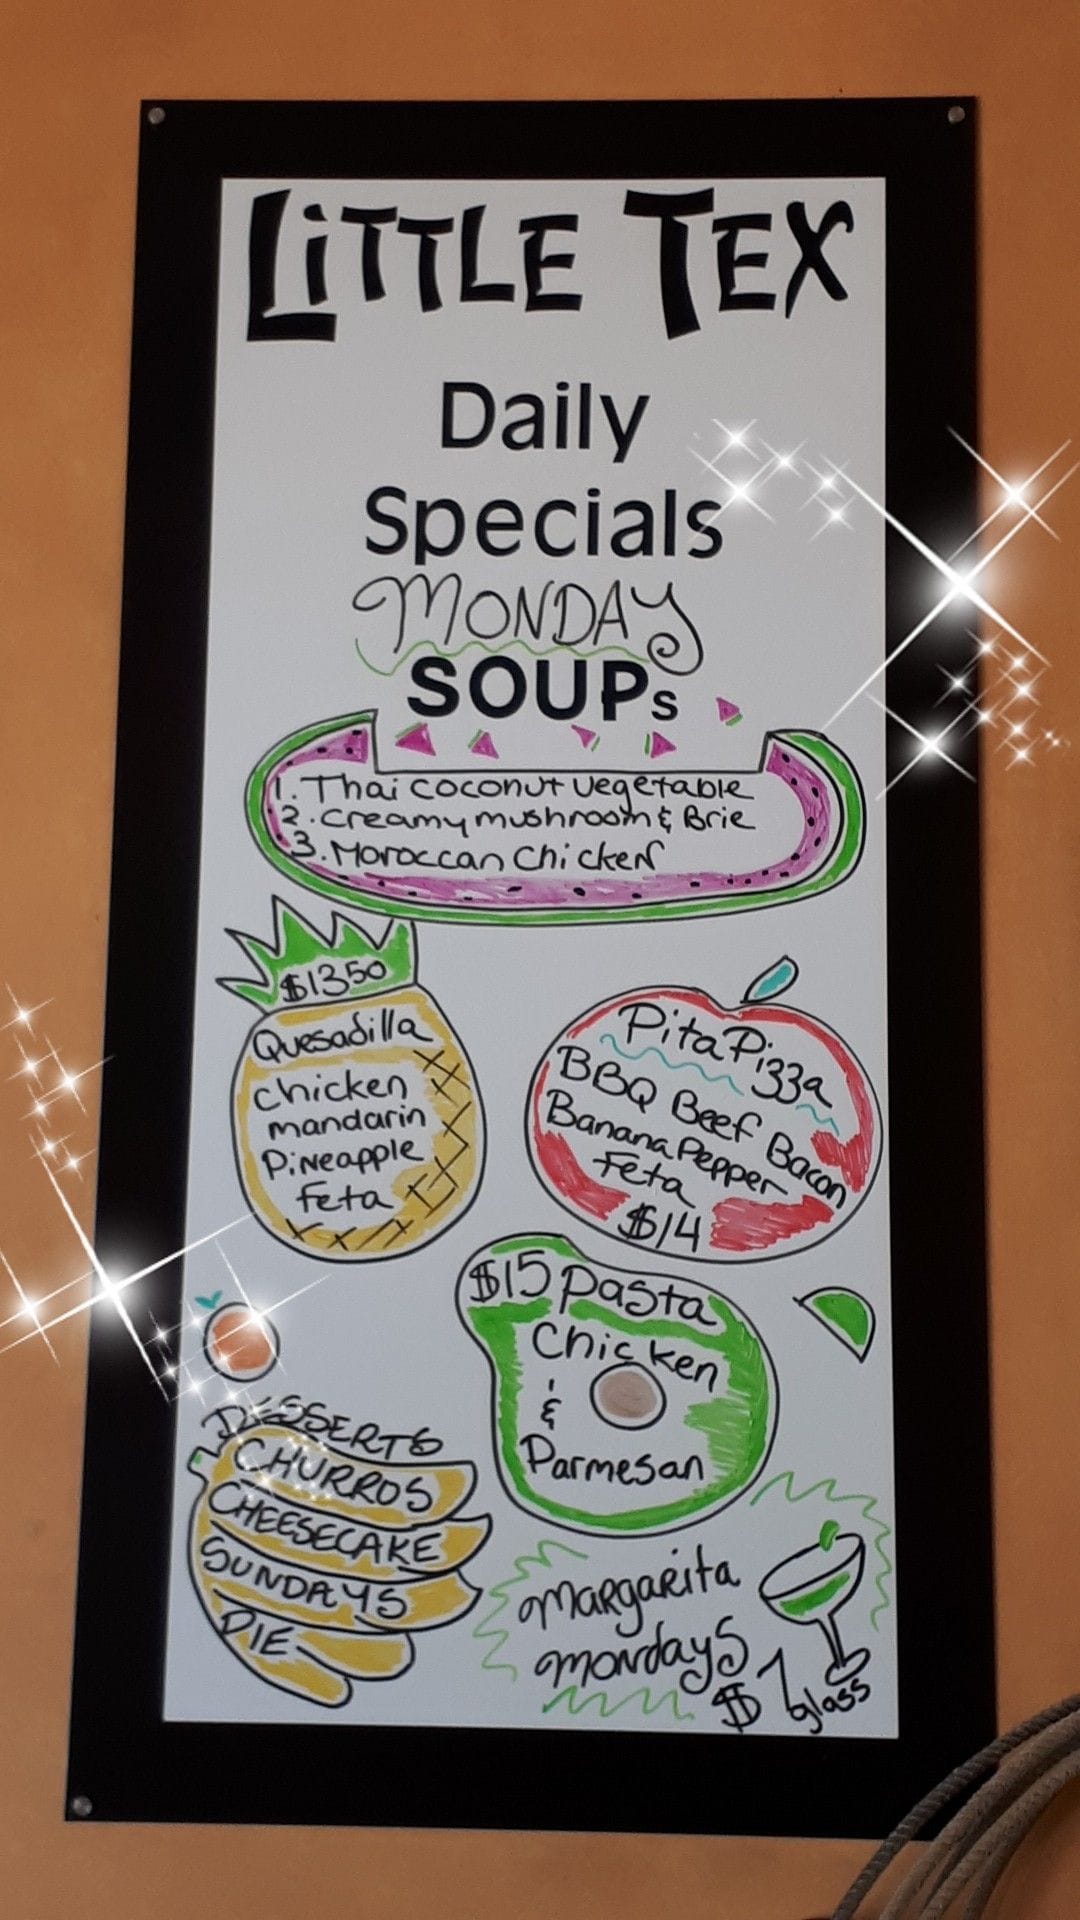 LiTTLE TEX
Daily
Specials
MONDAY
SOUPs
1. Thai coconut vegetable
2. Creamy mushroom & Brie
3. Moroccan Chicken
$1350
Quesadilla
chicken
mandarin
Pineapple
feta
Pita Pizza
BBQ Beef Bacon
Banana Pepper
Feta
$14
$15 Pasta
Chicken
&
Parmesan
DESSERTS
CHURROS
CHEESECAKE
SUNDAYS
PIE
Margarita
Mondays
$7 glass